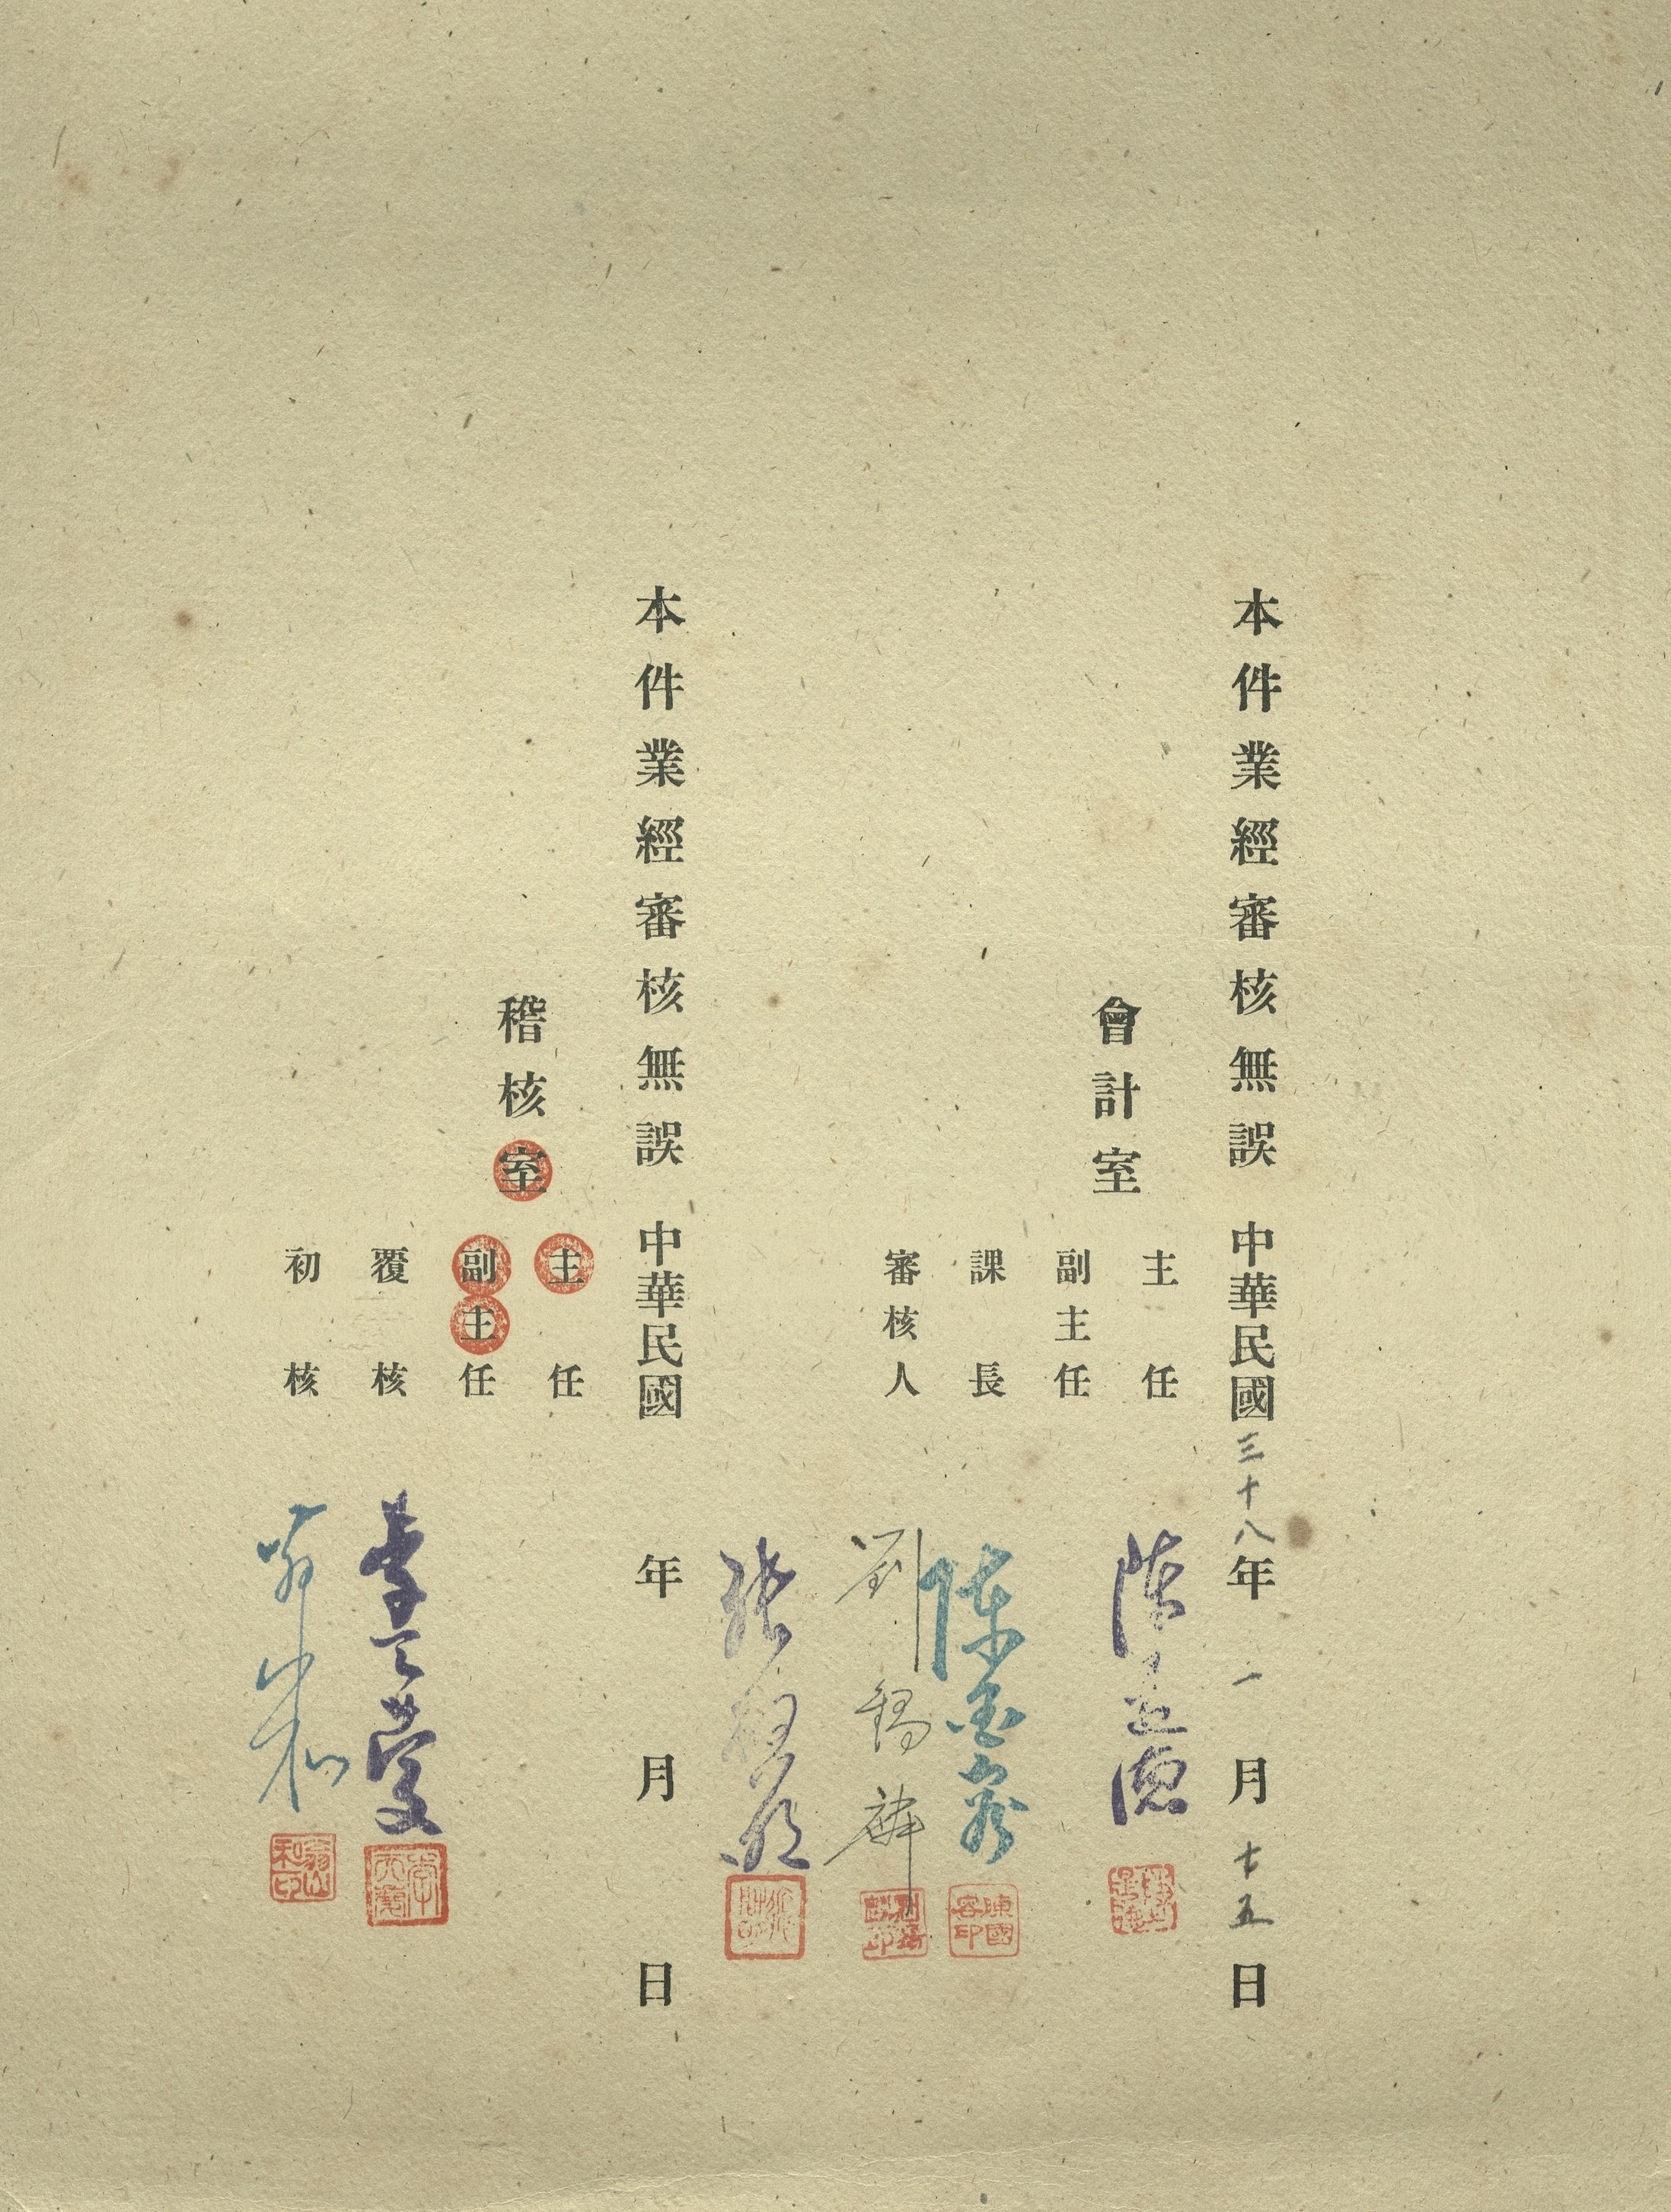 本件業經審核無誤 中華民國三十八年一月十五日
會計室
主任 陳
副主任
課長 陳
審核人 劉
張
本件業經審核無誤 中華民國 年 月 日
稽核室
主任
副主任
覆核 李
初核 翁
陳國容印